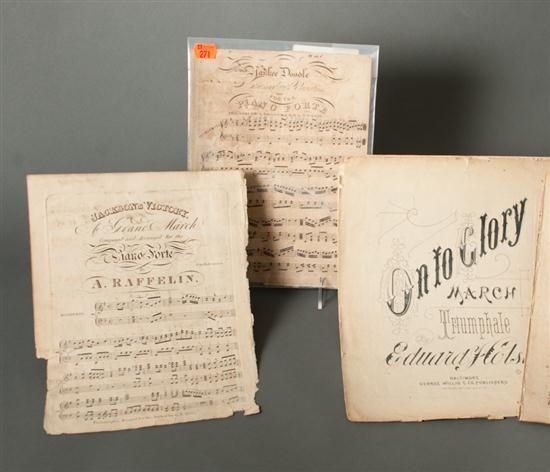 271
Yankee Doodle
FOR THE
PIANO FORTE
JACKSON'S VICTORY
A Grand March
Composed and Arranged for the
Piano Forte
by
A. RAFFELIN.
On to Glory
MARCH
Triumphale
Eduard Hols
BALTIMORE
GEORGE WILLIG & CO. PUBLISHERS